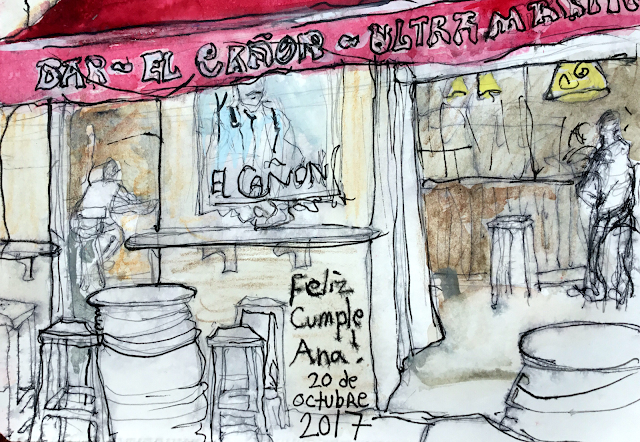 BAR ~ EL CAÑON ~ ULTRAMARI
EL CAÑON
Feliz
Cumple
Ana!
20 de
octubre
2017